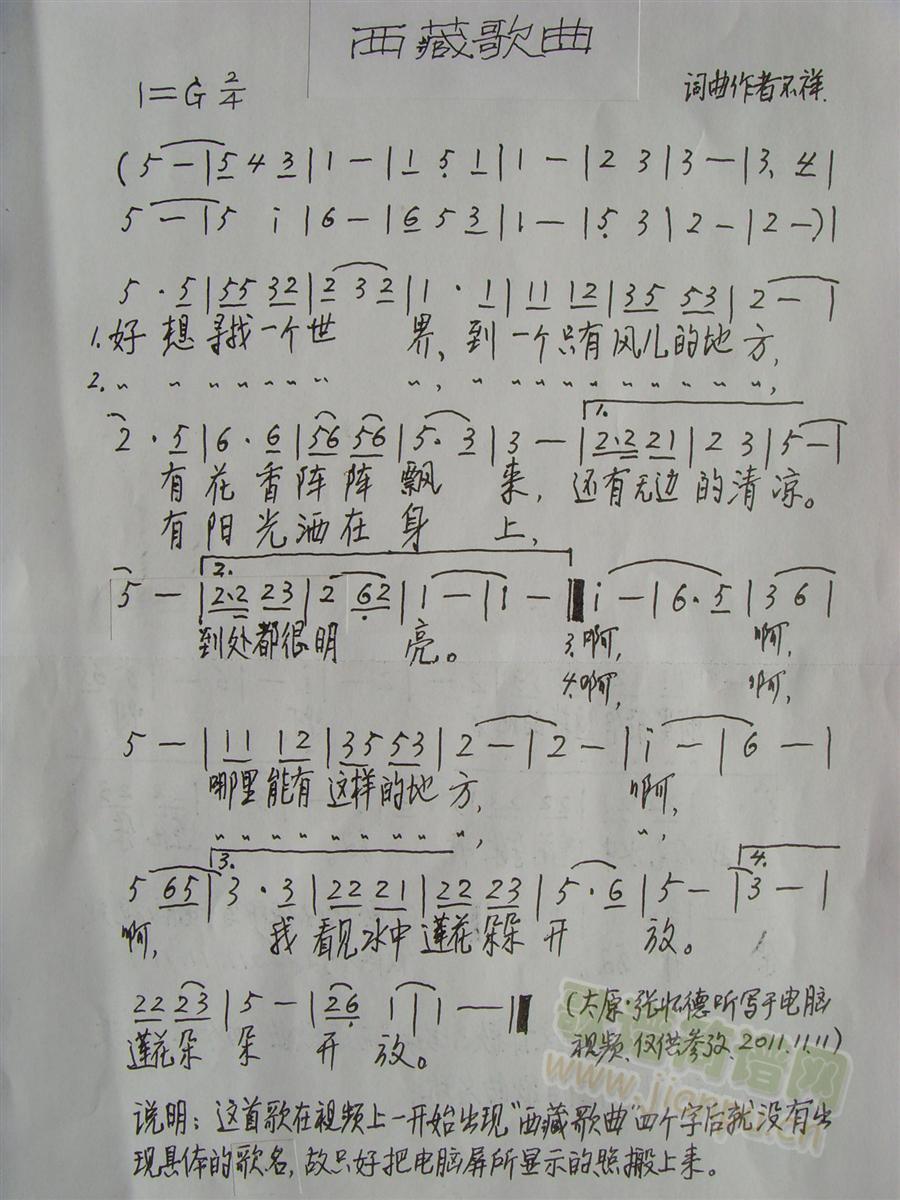 西藏歌曲
1=G 2/4
词曲作者不祥.
(5 — | 5 4 3 | 1 — | 1 5 1 | 1 — | 2 3 | 3 — | 3. 4 |
5 — | 5 i | 6 — | 6 5 3 | 1 — | 5 3 | 2 — | 2 —) |
5 · 5 | 55 32 | 2 3 2 | 1 · 1 | 11 12 | 35 53 | 2 — |
1.好想寻找一个世界,到一个只有风儿的地方,
2. 〃 〃 〃 〃 〃 〃 〃 〃, 〃 〃 〃 〃 〃 〃 〃 〃 〃 〃,
1.
2 · 5 | 6 · 6 | 56 56 | 5 · 3 | 3 — | 2·2 21 | 2 3 | 5 — |
有花香阵阵飘来,还有无边的清凉。
有阳光洒在身上,
2.
5 — | 2·2 23 | 2 62 | 1 — | 1 — | i — | 6 · 5 | 3 6 |
到处都很明亮。 3.啊, 啊,
4.啊, 啊,
5 — | 11 12 | 35 53 | 2 — | 2 — | i — | 6 — |
哪里能有这样的地方, 啊,
〃 〃 〃 〃 〃 〃 〃 〃 〃, 〃,
3. 4.
5 65 | 3 · 3 | 22 21 | 22 23 | 5 · 6 | 5 — | 3 — |
啊, 我看见水中莲花朵朵开放。
22 23 | 5 — | 26 1 | 1 — |
莲花朵朵开放。
(太原·张怀德听写于电脑
视频.仅供参考.2011.11.11)
说明:这首歌在视频上一开始出现"西藏歌曲"四个字后就没有出
现具体的歌名,故只好把电脑屏所显示的照搬上来。